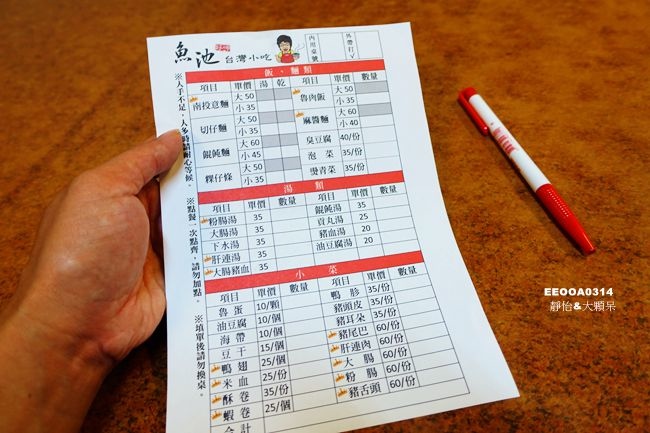 魚池 台灣小吃
內用桌號 外帶打√
飯、麵類
項目 單價 湯 乾 項目 單價 數量
南投意麵 大 50 小 35
魯肉飯 大 50 小 35
切仔麵 大 50 小 35
麻醬麵 大 60 小 40
餛飩麵 大 60 小 45
臭豆腐 40/份
泡菜 35/份
粿仔條 大 50 小 35
燙青菜 35/份
湯類
項目 單價 數量 項目 單價 數量
粉腸湯 35 餛飩湯 35
大腸湯 35 貢丸湯 25
下水湯 35 豬血湯 20
肝連湯 35 油豆腐湯 20
大腸豬血 35
小菜
項目 單價 數量 項目 單價 數量
魯蛋 10/顆 鴨胗 35/份
油豆腐 10/個 豬頭皮 35/份
海帶 10/個 豬耳朵 35/份
豆干 15/個 豬尾巴 60/份
鴨翅 25/個 肝連肉 60/份
米血 25/份 大腸 60/份
酥卷 35/份 粉腸 60/份
蝦卷 25/個 豬舌頭 60/份
合計
※人手不足,人多時請耐心等候。
※點餐一次點齊,請勿加點。
※填單後請勿換桌。
EEOOA0314
靜怡&大顆呆